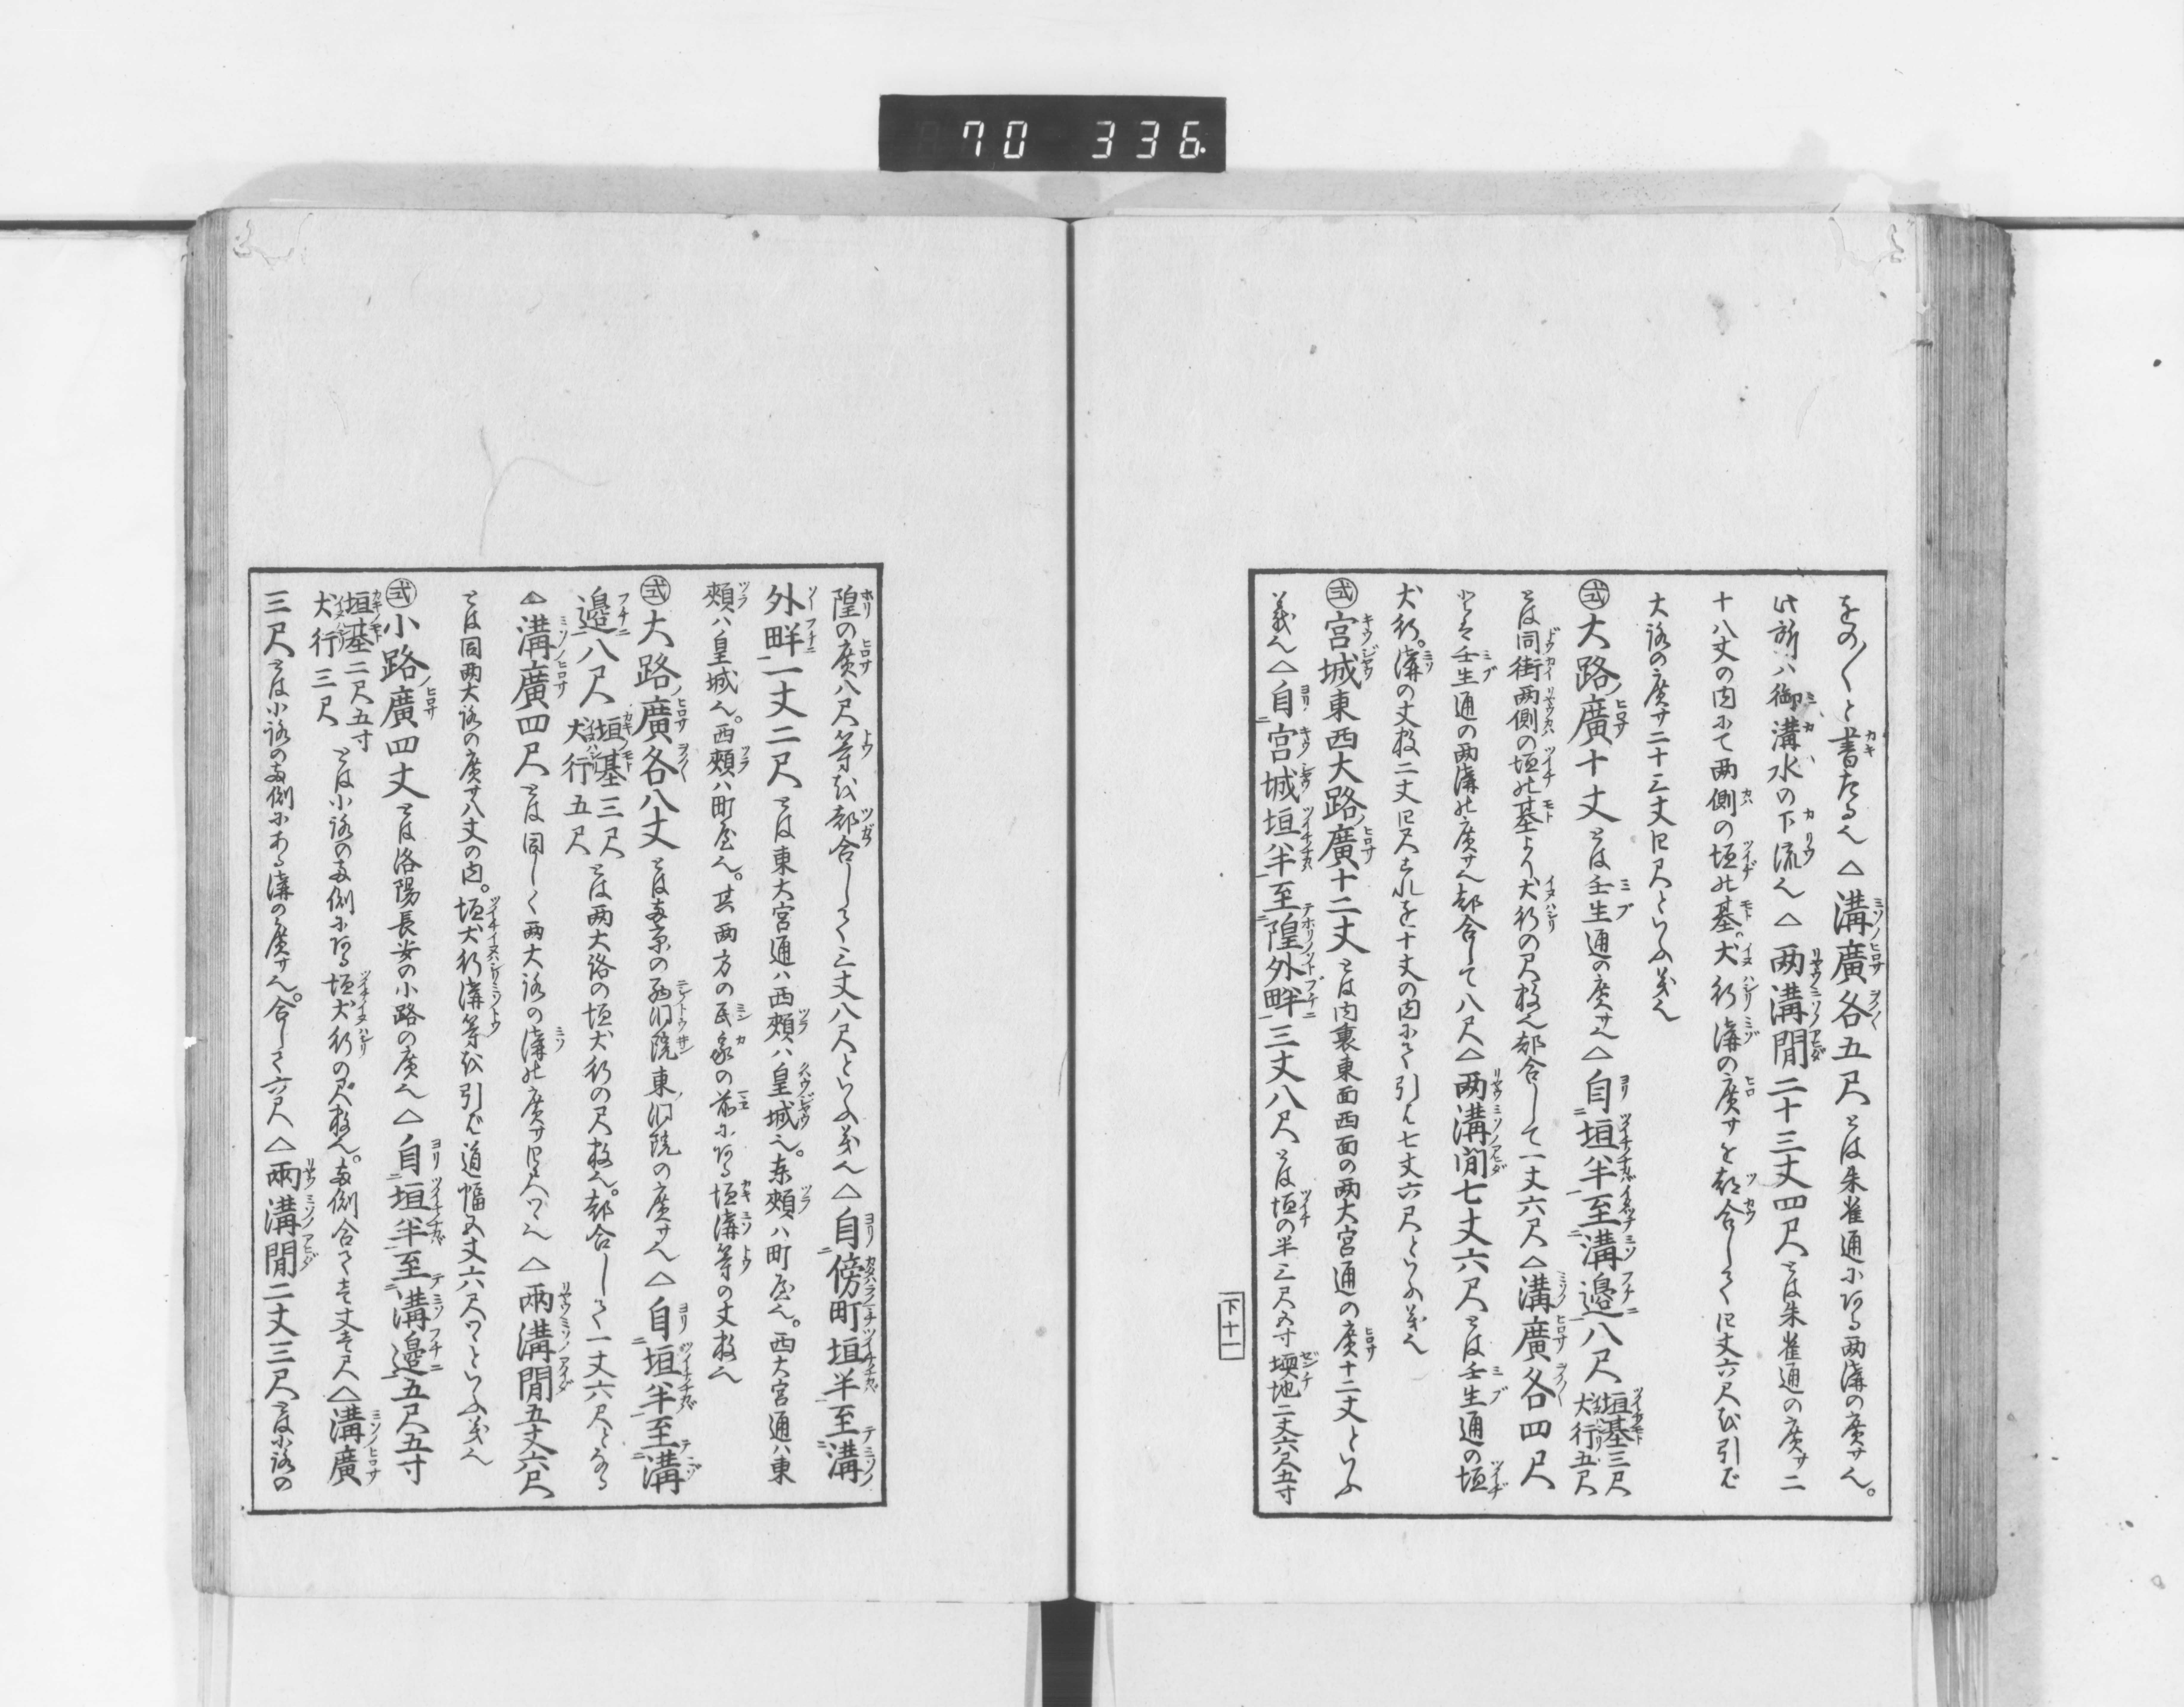 70 336
をの〱と書たる也△溝廣各五尺とは朱雀通にある両溝の廣サ也。
此所ハ御溝水の下流也△両溝間二十三丈四尺とは朱雀通の廣サ二
十八丈の内にて両側の垣の基犬行溝の廣サを都合して四丈六尺を引ば
大路の廣サ二十三丈四尺といふ義也
㊀式大路廣十丈とは壬生通の廣サ也△自垣半至溝邉八尺垣基三尺犬行五尺
とは同街両側の垣の基より犬行の尺数也都合して一丈六尺△溝廣各四尺
とは壬生通の両溝の廣サ也都合して八尺△両溝間七丈六尺とは壬生通の垣
犬行。溝の丈数二丈四尺これを十丈の内にて引ば七丈六尺といふ義也
式宮城東西大路廣十二丈とは内裏東面西面の両大宮通の廣十二丈といふ
義也△自宮城垣半至隍外畔三丈八尺とは垣の半三尺五寸壖地二丈六尺五寸
下十一
隍の廣八尺等を都合して三丈八尺といふ義也△自傍町垣半至溝
外畔一丈二尺とは東大宮通ハ西頬ハ皇城也。東頬ハ町屋也。西大宮通ハ東
頬ハ皇城也。西頬ハ町屋也。其両方の民家の前にある垣溝等の丈数也
式大路廣各八丈とは両京の西洞院東洞院の廣サ也△自垣半至溝
邉八尺垣基三尺犬行五尺とは両大路の垣犬行の尺数也。都合して一丈六尺となる
△溝廣四尺とは同しく両大路の溝の廣サ四尺ツゝ也△両溝間五丈六尺
とは同両大路の廣サ八丈の内。垣犬行溝等を引ば道幅五丈六尺ツゝといふ義也
式小路廣四丈とは洛陽長安の小路の廣也△自垣半至溝邉五尺五寸
垣基二尺五寸犬行三尺とは小路の両側にある垣犬行の尺数也。両側合て壱丈壱尺△溝廣
三尺とは小路の両側にある溝の廣サ也。合して六尺△両溝間二丈三尺とは小路の